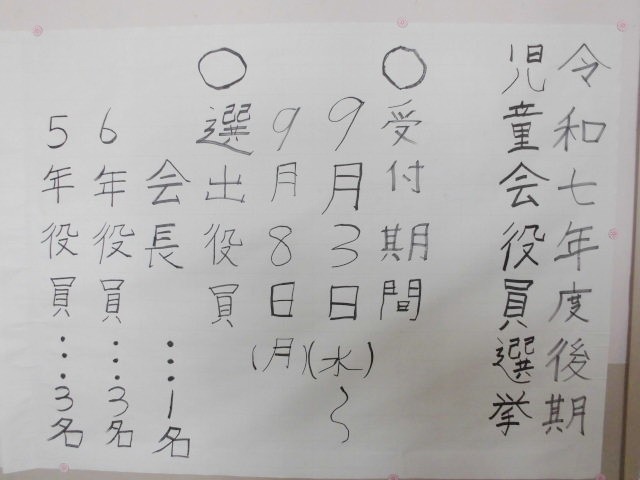 令和七年度後期
児童会役員選挙
○受付期間
9月3日(水)~
9月8日(月)
○選出役員
会長…1名
6年役員…3名
5年役員…3名